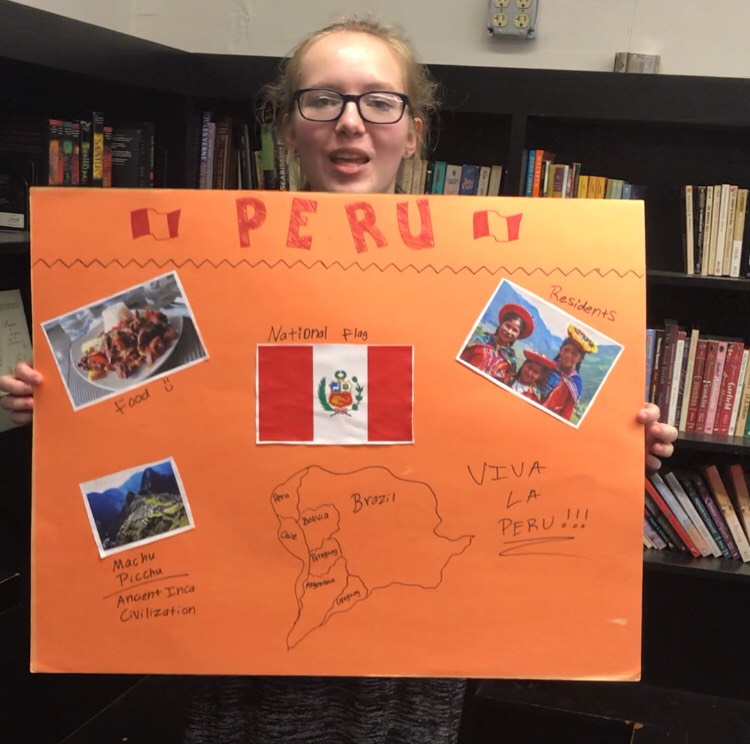 PERU
Residents
National Flag
Food
VIVA
LA
PERU!!!
Peru
Brazil
Bolivia
Chile
Paraguay
Argentina
Uruguay
Machu
Picchu
Ancient Inca
Civilization